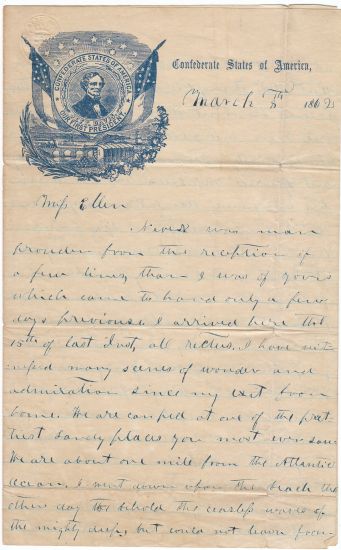 CONFEDERATE STATES OF AMERICA
OUR FIRST PRESIDENT
Confederate States of America,
March 8th 1862
Miss Ellen
Never was man
prouder from the reception of
a few lines than I was of yours
which came to hand only a few
days previouse. I arrived here the
15th of last Inst, all rectus. I have wit-
nessed many scenes of wonder and
admiration since my exit from
home. We are camped at one of the pret-
tiest Sandy places you most ever saw
We are about one mile from the Atlantic
Ocean. I went down upon the beach the
other day to behold the waves of
the mighty deep, but could not learn from